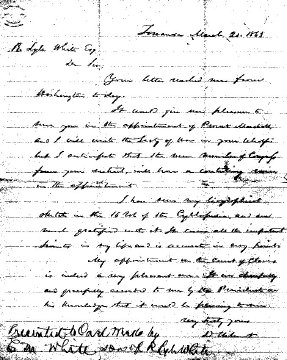 Towanda March 21. 1863
R Lyle White Esq
Dr Sir,
Your letter reached me from
Washington to day.
It would give me pleasure to
serve you in the appointment of Provost Marshall
and I will write the Secy of War in your behalf
but I anticipate that the new Member of Congress
from your district, will have a controlling
in the appointment
I have seen my biographical
sketch in the 16 Vol of the Cyclopedia and am
much gratified with it. It covers all the important
points in my life and is accurate in every point
My appointment on the Court of Claims
is indeed a very pleasant one. It was
and gracefully accorded to me by the President
his knowledge that it would be pleasing to me.
Very truly yours
D Wilmot
Presented to by
E M White son of R Lyle White